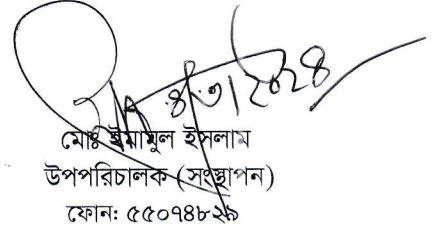 ৪/৩/২০২৪
মোঃ ইমামুল ইসলাম
উপপরিচালক (সংস্থাপন)
ফোন: ৫৫০৭৪৮২৯